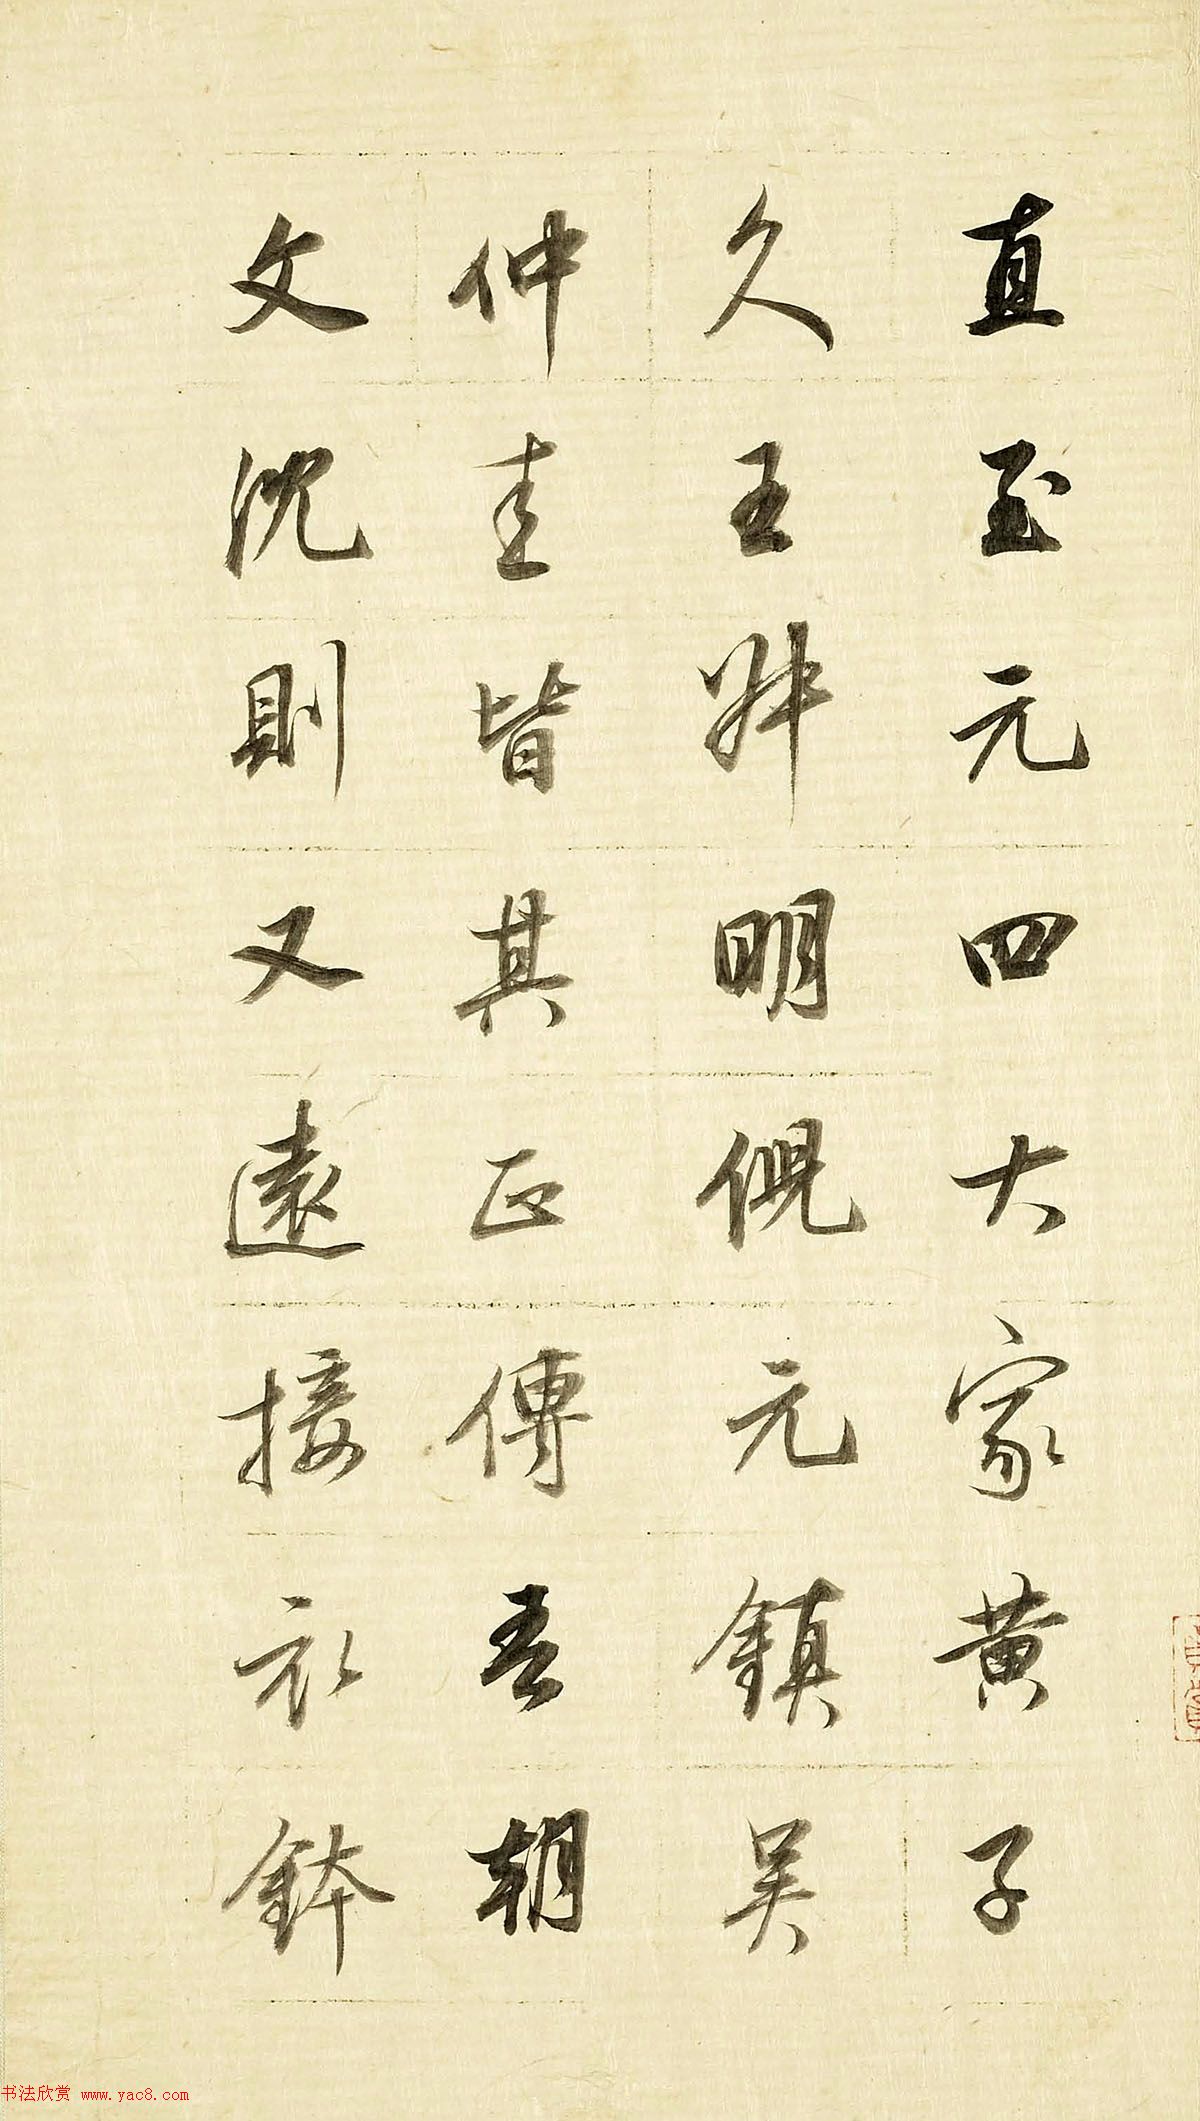 直至元四大家黄子
久王叔明倪元鎮吴
仲圭皆其正傳吾朝
文沈則又遠接衣鉢
书法欣赏 www.yac8.com